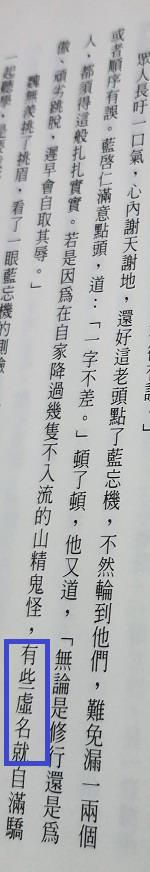 眾人長吁一口氣，心內謝天謝地，還好這老頭點了藍忘機，不然輪到他們，難免漏一兩個
或者順序有誤。藍啓仁滿意點頭，道：「一字不差。」頓了頓，他又道，「無論是修行還是爲
人，都須得這般扎扎實實。若是因爲在自家降過幾隻不入流的山精鬼怪，有些虛名就自滿驕
傲、頑劣跳脫，遲早會自取其辱。」
魏無羨挑了挑眉，看了一眼藍忘機的側臉